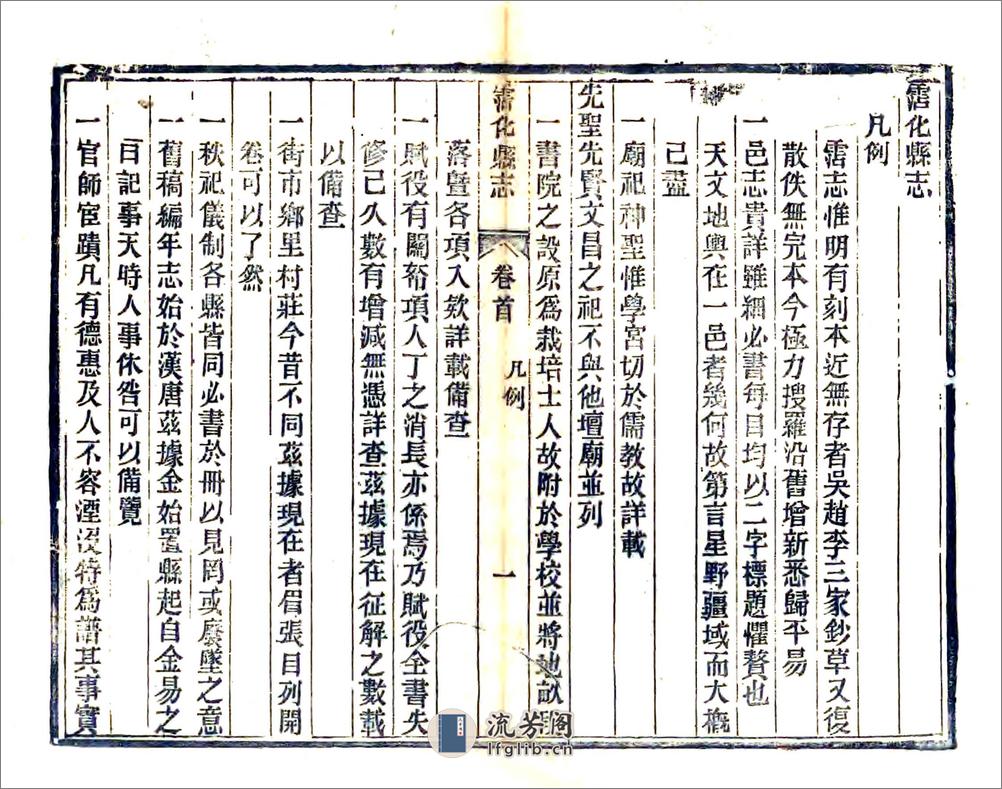 霑化縣志
凡例
一霑志惟明有刻本近無存者吳趙李三家鈔草又復
散佚無完本今極力搜羅沿舊增新悉歸平易
一邑志貴詳雖細必書每目均以二字標題懼贅也
天文地輿在一邑者幾何故第言星野疆域而大概
已盡
一廟祀神聖惟學宮切於儒教故詳載
先聖先賢文昌之祀不與他壇廟並列
一書院之設原爲栽培士人故附於學校並將地畝
霑化縣志
卷首
凡例
一
落暨各項入欵詳載備查
一賦役有關帑項人丁之消長亦係焉乃賦役全書失
修已久數有增減無憑詳查茲據現在征解之數載
以備查
一街市鄉里村莊今昔不同茲據現在者眉張目列開
卷可以了然
一秩祀儀制各縣皆同必書於冊以見罔或廢墜之意
一舊稿編年志始於漢唐茲據金始置縣起自金易之
曰記事天時人事休咎可以備覽
一官師宦蹟凡有德惠及人不容湮沒特爲譜其事實
流芳閣
lfglib.cn